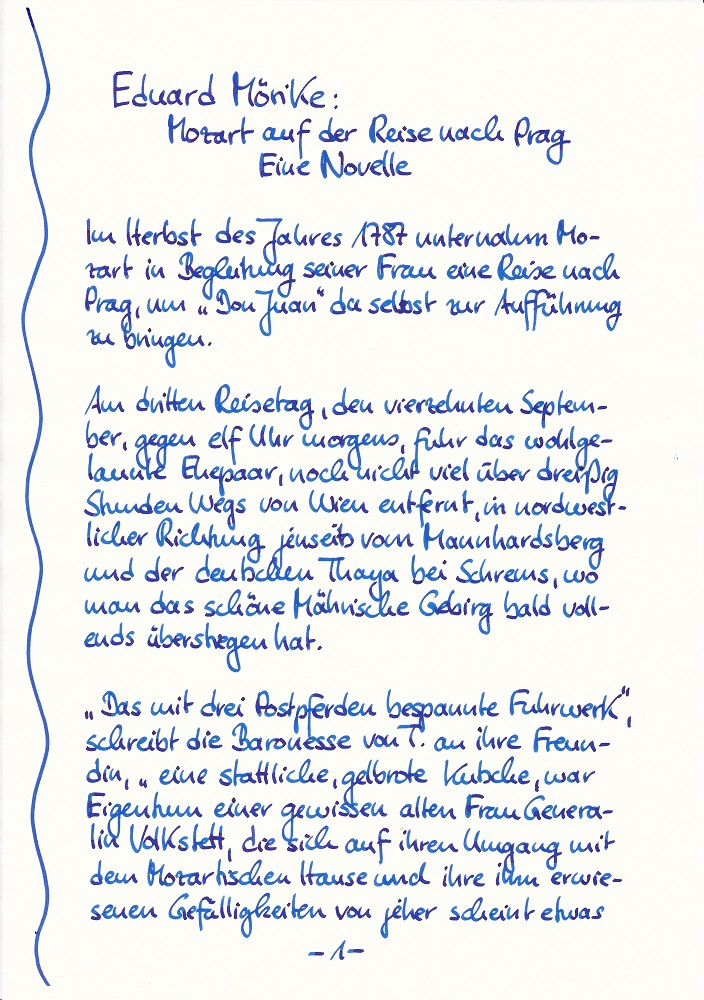 Eduard Mörike:
Mozart auf der Reise nach Prag
Eine Novelle
Im Herbst des Jahres 1787 unternahm Mo-
zart in Begleitung seiner Frau eine Reise nach
Prag, um „Don Juan“ da selbst zur Aufführung
zu bringen.
Am dritten Reisetag, den vierzehnten Septem-
ber, gegen elf Uhr morgens, fuhr das wohlge-
launte Ehepaar, noch nicht viel über dreißig
Stunden Wegs von Wien entfernt, in nordwest-
licher Richtung jenseits vom Mannhardsberg
und der deutschen Thaya bei Schrems, wo
man das schöne Mährische Gebirg bald voll-
ends überstiegen hat.
„Das mit drei Postpferden bespannte Fuhrwerk“,
schreibt die Baronesse von T. an ihre Freun-
din, „eine stattliche, gelbrote Kutsche, war
Eigentum einer gewissen alten Frau Genera-
lin Volkstett, die sich auf ihren Umgang mit
dem Mozartischen Hause und ihre ihm erwie-
senen Gefälligkeiten von jeher scheint etwas
-1-